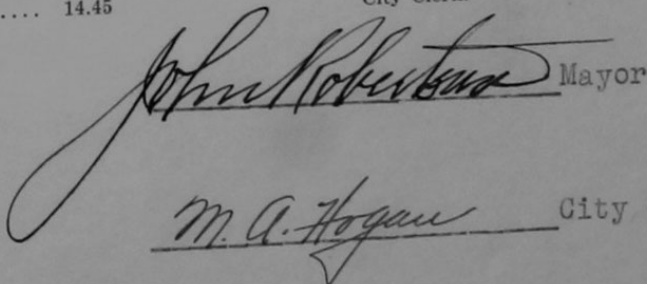 .... 14.45
John Robertson Mayor
M. A. Hogan City